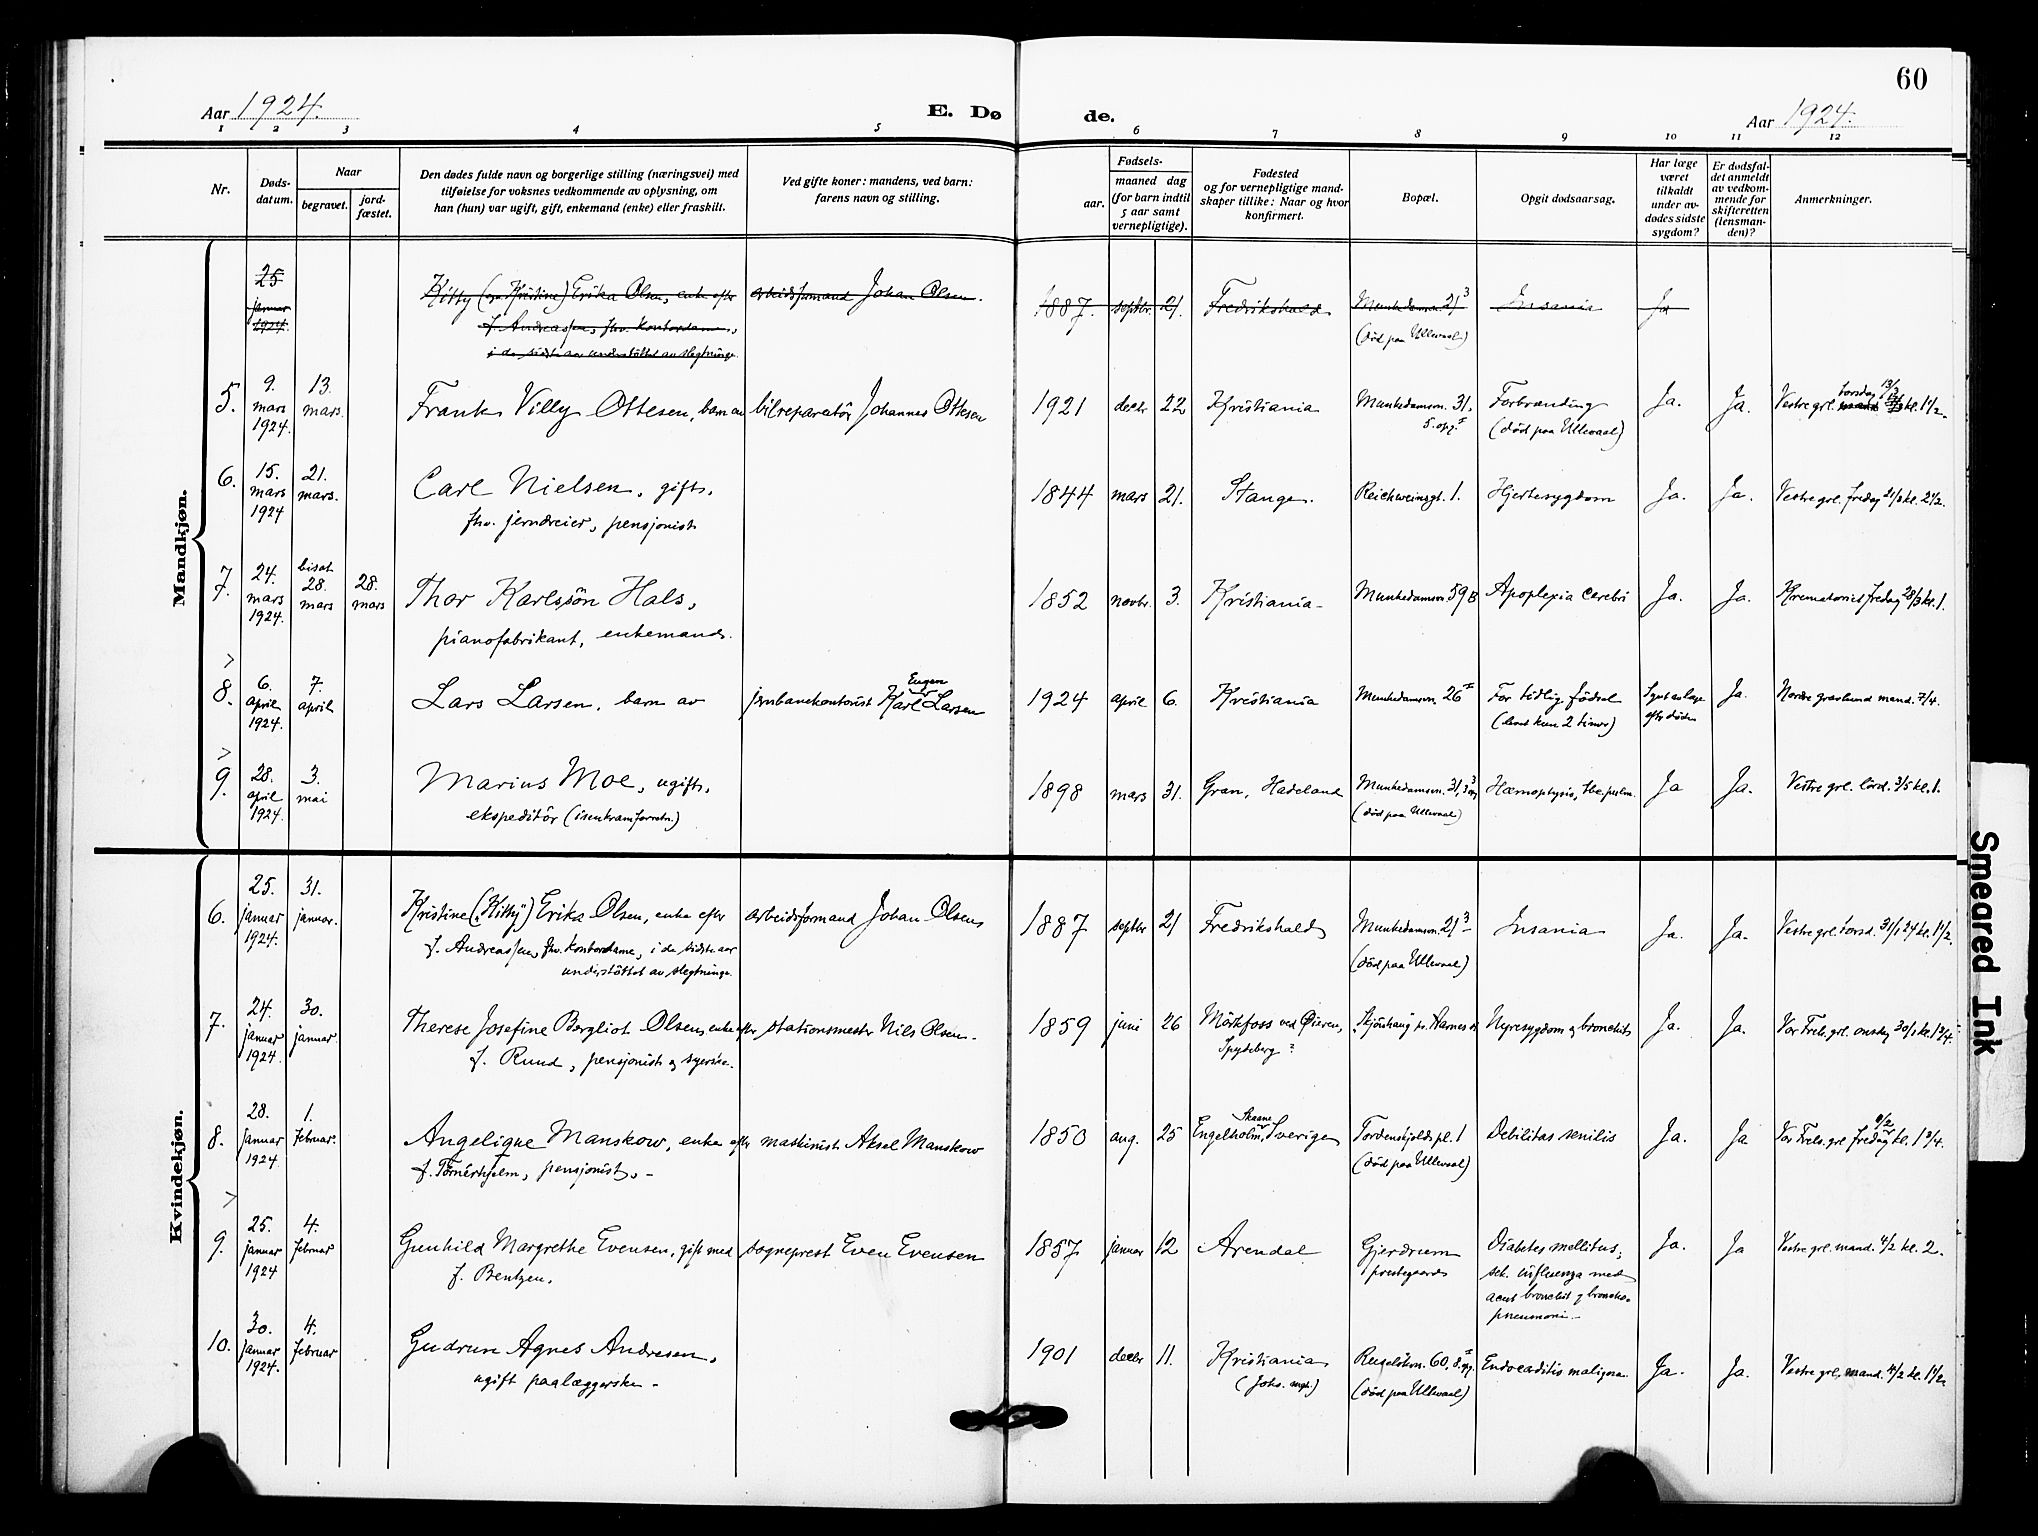 60
Aar 1924.
E. Dø
de.
Aar 1924.
1 2 3 4 5 6 7 8 9 10 11 12
Nr.
Døds-
datum.
Naar
begravet.
jord-
fæstet.
Den dødes fulde navn og borgerlige stilling (næringsvei) med
tilføielse for voksnes vedkommende av oplysning, om
han (hun) var ugift, gift, enkemand (enke) eller fraskilt.
Ved gifte koner: mandens, ved barn:
farens navn og stilling.
Fødsels-
aar.
maaned dag
(for barn indtil
5 aar samt
vernepligtige).
Fødested
og for vernepligtige mand-
skaper tillike: Naar og hvor
konfirmert.
Bopæl.
Opgit dødsaarsag.
Har læge
været
tilkaldt
under av-
dødes sidste
sygdom?
Er dødsfal-
det anmeldt
av vedkom-
mende for
skifteretten
(lensman-
den)?
Anmerkninger.
Mandkjøn.
25 januar 1924.
Kitty (Kristine) Erika Olsen, enke efter arbeidsformand Johan Olsen.
f. Andreassen, fhv. kontordame,
i de sidste aar understöttet av slegtninge.
1887. septbr. 21. Fredrikshald Munkedamsvn. 21³ (död paa Ullevaal) Insania Ja
5. 9. mars 1924. 13. mars.
Frank Villy Ottesen, barn av bilreparatör Johannes Ottesen
1921 decbr 22 Kristiania Munkedamsvn. 31. 5. opg. I Forbrænding (död paa Ullevaal) Ja. Ja. Vestre grl. torsdag 13/3 kl. 1½.
6. 15. mars 1924 21. mars.
Carl Nielsen, gift,
fhv. jerndreier, pensjonist
1844 mars 21. Stange. Reichweinsgt. 1. Hjertesygdom Ja. Ja. Vestre grl. fredag 21/3 kl. 2½.
7. 24. mars 1924. bisat 28. mars 28. mars
Thor Karlssön Hals,
pianofabrikant, enkemand.
1852 novbr. 3. Kristiania Munkedamsvn. 59B Apoplexia cerebri Ja. Ja. Krematoriet fredag 28/3 kl. 1.
8. 6. april 1924. 7. april
Lars Larsen, barn av jernbanekontorist Karl Eugen Larsen
1924 april 6. Kristiania Munkedamsvn. 26 I For tidlig födsel (levet kun 2 timer) Synt av læge efter döden Ja. Nordre gravlund mand. 7/4.
9. 28. april 1924. 3. mai
Marius Moe, ugift,
ekspeditör (isenkramforretn.)
1898 mars 31. Gran, Hadeland Munkedamsvn. 31, 3 opg (död paa Ullevaal) Hæmoptysis, tbc. pulm. Ja Ja. Vestre grl. lörd. 3/5 kl. 1.
Kvindekjøn.
6. 25. januar 1924. 31. januar.
Kristine ("Kitty") Erika Olsen, enke efter arbeidsformand Johan Olsen
f. Andreassen, fhv. kontordame, i de sidste aar
understöttet av slegtninge.
1887 septbr 21 Fredrikshald Munkedamsvn. 21³ (död paa Ullevaal) Insania Ja. Ja. Vestre grl. torsd. 31/1 24 kl. 1½.
7. 24. januar 1924. 30. januar
Therese Josefine Bergliot Olsen, enke efter stationsmester Nils Olsen.
f. Rund, pensjonist og syerske.
1859 juni 26 Mörkfoss ved Öieren, Spydeberg? Skjönhaug pr. Aarnes st Nyresygdom og bronchit Ja. Ja. Vor Frels. grl. onsdag 30/1 kl. 1¾.
8. 28. januar 1924 1. februar.
Angelique Manskow, enke efter maskinist Aksel Manskow
f. Törnerhjelm, pensjonist.
1850 aug. 25 Engelholm, Skaane, Sverige Tordenskjolds pl. 1 (död paa Ullevaal) Debilitas senilis Ja. Ja Vor Frels. grl fredag 1/2 kl. 1¾.
9. 25. januar 1924 4. februar
Gunhild Margrethe Evensen, gift med sogneprest Even Evensen
f. Bentzen.
1857 januar 12 Arendal Gjerdrum prestegaard Diabetes mellitus; sek. influenza med acut bronchit og broncho-pneumoni. Ja. Ja Vestre grl. mand. 4/2 kl. 2.
10. 30. januar 1924. 4. februar
Gudrun Agnes Andresen,
ugift paalæggerske
1901 decbr 11. Kristiania (Johs. mgh.) 60, 8. opg. I (död paa Ullevaal) Endocarditis maligna Ja. Ja. Vestre grl. mand. 4/2 kl. 1½.
Smeared Ink